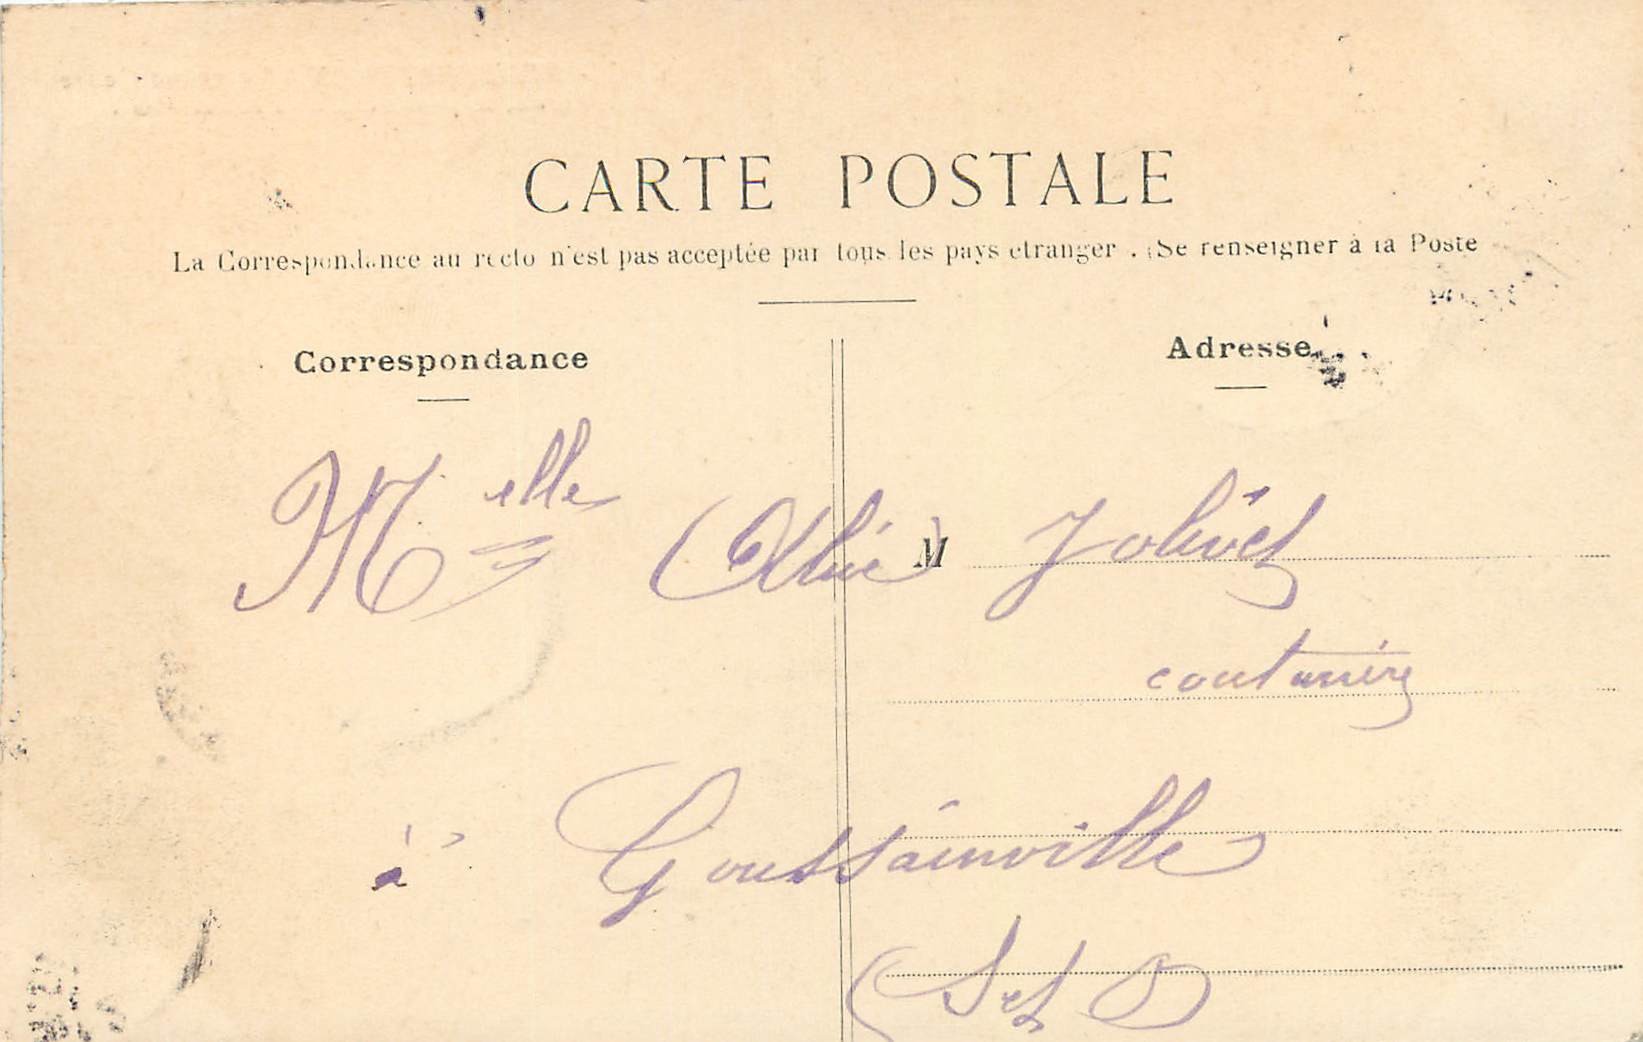 CARTE POSTALE
La Correspondance au recto n'est pas acceptée par tous les pays etranger . (Se renseigner à la Poste
Correspondance
Adresse
Melle M Jolivet
couturière
à Goussainville
(S et O